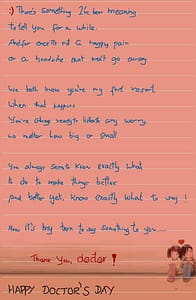 :) There's something I've been meaning
to tell you for a while.
And for once it's not a nappy pain
or a headache that won't go away.
We both know you're my first resort
when that happens
You're always ready to listen to any worry,
no matter how big or small.
You always seem to know exactly what
to do to make things better
and better yet, know exactly what to say!
Now it's my turn to say something to you....
Thank You, doctor!
HAPPY DOCTOR'S DAY